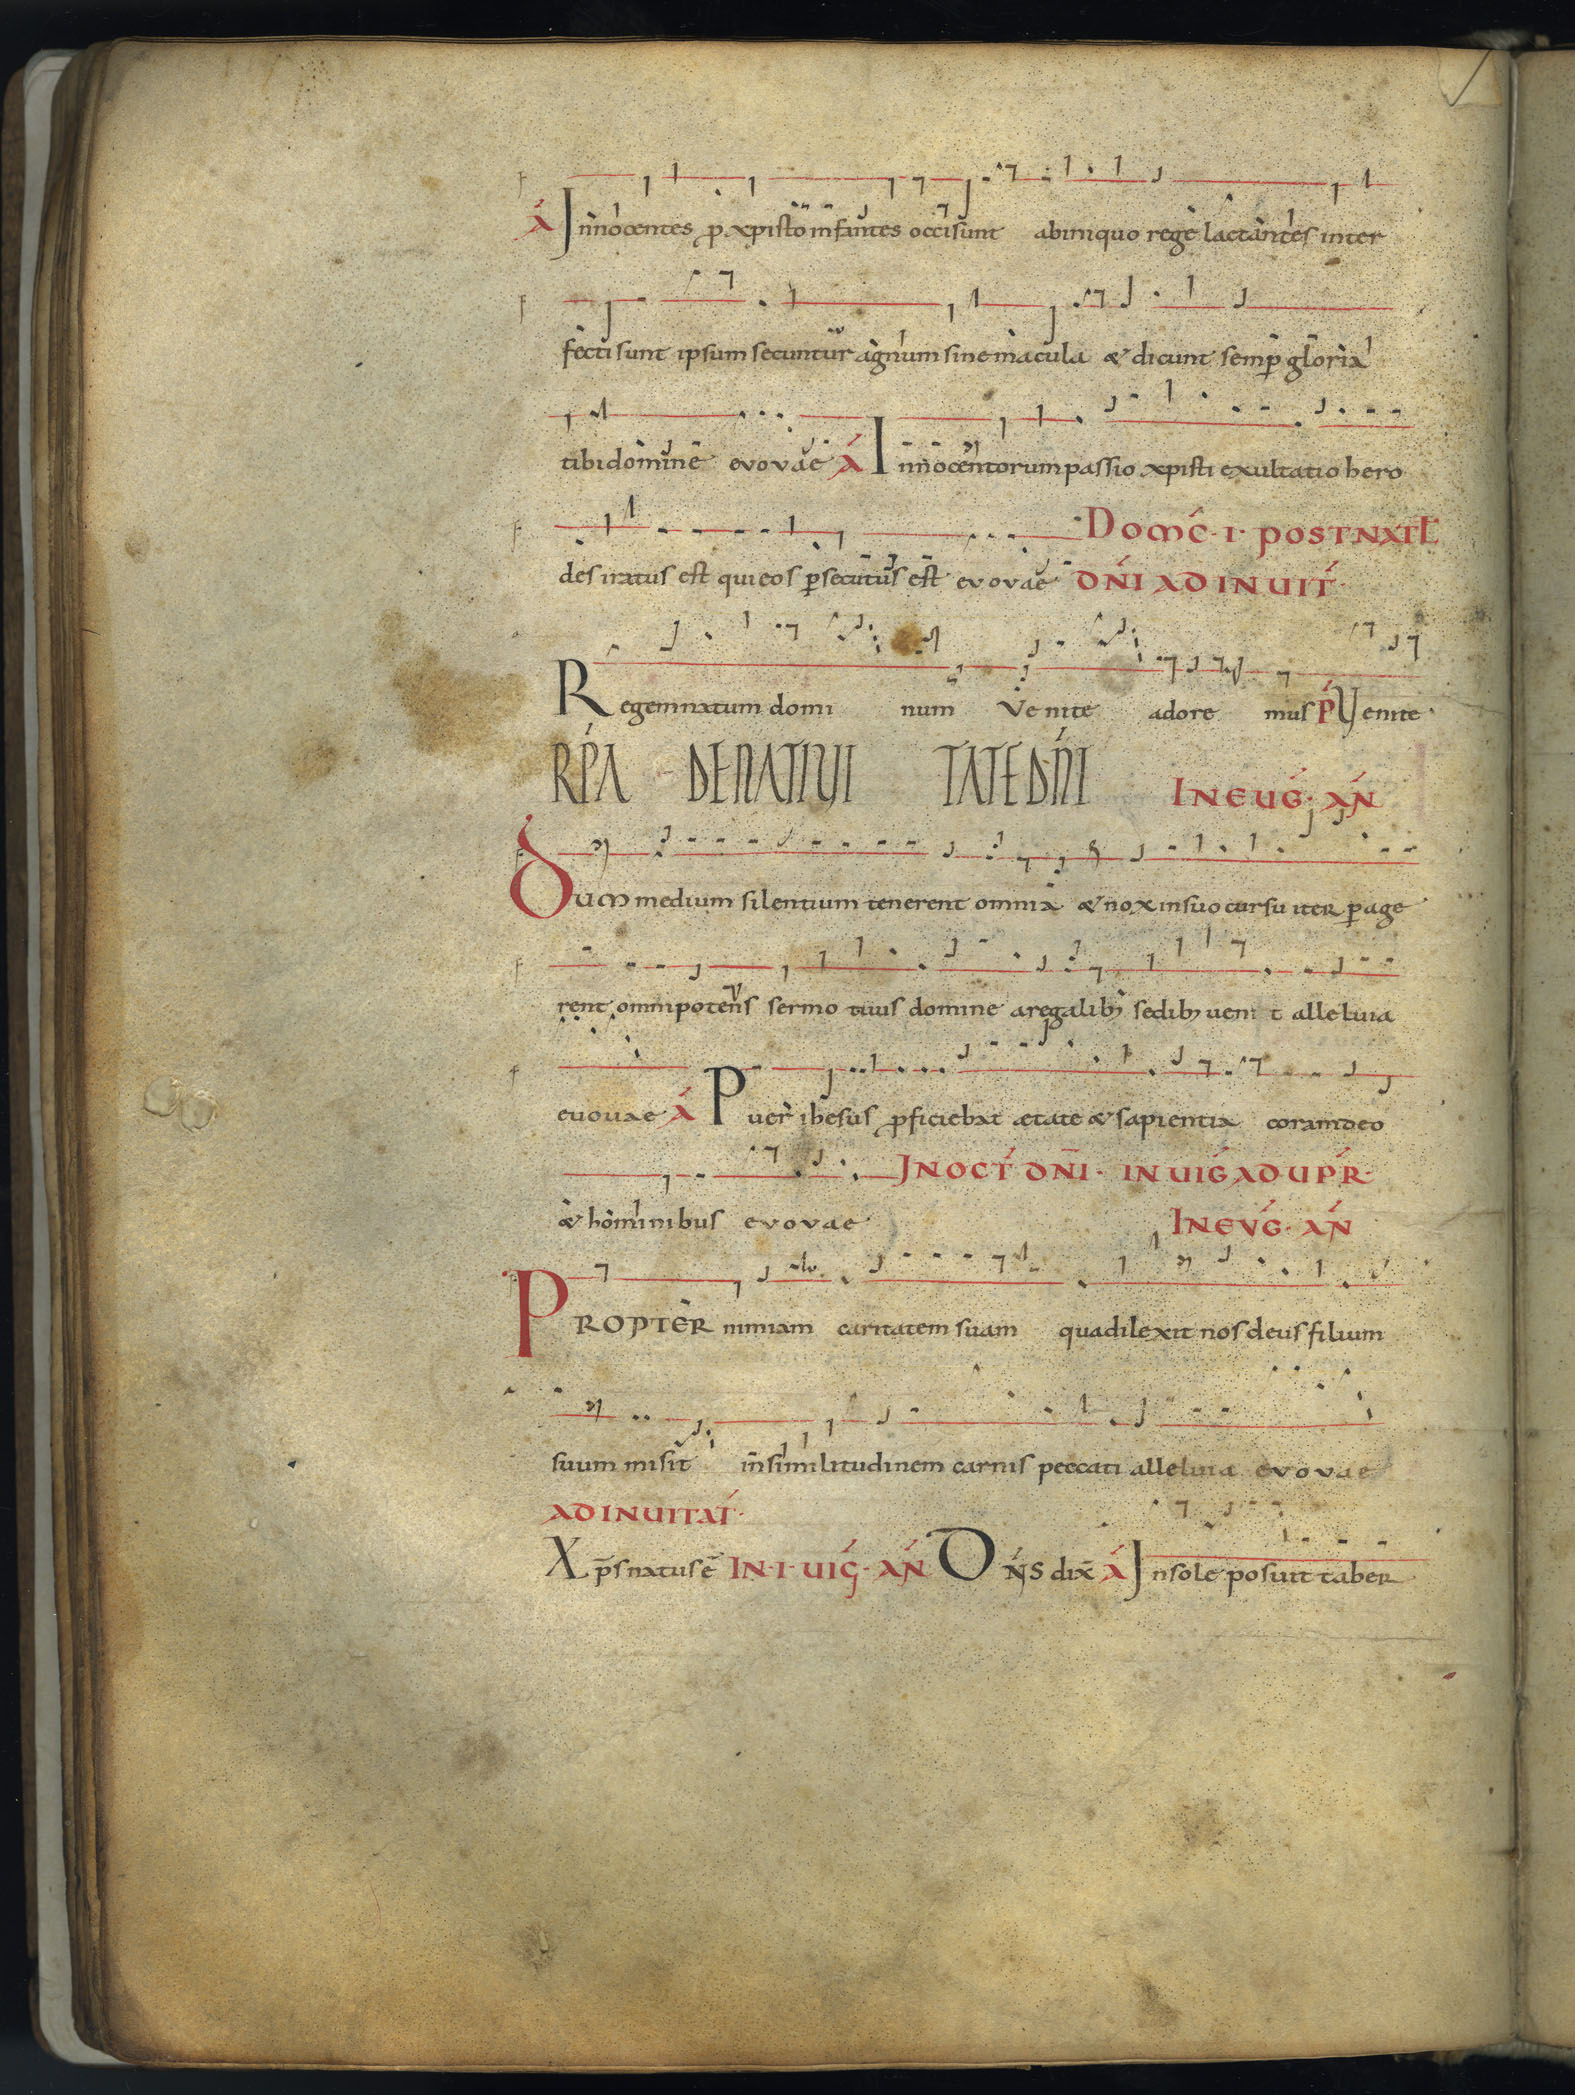 Ā Innocentes p̱ xpisto infantes occisunt abiniquo rege lactantes inter
fecti sunt ipsum secuntur agnum sinemacula & dicunt semp̱ gloria
tibi domine evovae Ā Innocentorum passio xpisti exultatio hero
des iratus est qui eos p̱secutus est evovae DOMC̄·I· POST NATL̄
DN̄I AD INUIT̄·
Regem natum domi num Venite adore mus P̄ Venite·
RP̄A DENATIVI TATE DN̄I IN EUḠ· AN̄
Dum medium silentium tenerent omnia & nox insuo cursu iter p̱age
rent omnipotens sermo tuus domine aregalib; sedib; venit alleluia
euouae Ā Puer ihesus p̱ficiebat ætate & sapientia coramdeo
IN OCT̄ DN̄I· IN UIḠ AD UP̄R·
& hominibus evovae IN EVḠ· AN̄
PROPTER nimiam caritatem suam quadilexit nos deus filium
suum misit insimilitudinem carnis peccati alleluia evovae
AD INUITAT̄·
Xp̄s natus ē IN·I·UIḠ·AN̄ DN̄S dix̄ Ā Insole posuit taber